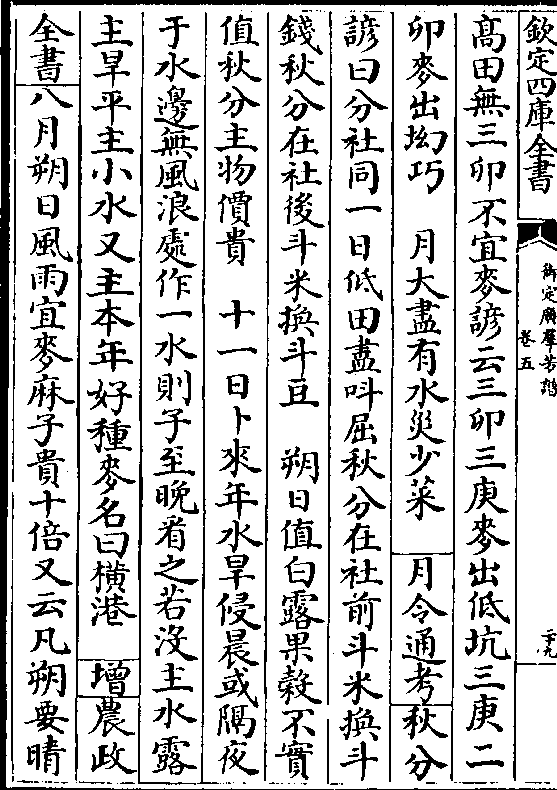 欽定四庫全書
御定廣羣芳譜
卷五
二十九
髙田無三卯不宜麥諺云三卯三庚麥出低坑三庚二
卯麥出㘭巧　月大盡有水災少菜　月令通考秋分
諺曰分社同一日低田盡呌屈秋分在社前斗米換斗
錢秋分在社後斗米換斗豆　朔日值白露果穀不實
值秋分主物價貴　十一日卜來年水旱侵晨或隔夜
于水邊無風浪處作一水則子至晚看之若沒主水露
主旱平主小水又主本年好種麥名曰橫港　增農政
全書八月朔日風雨宜麥麻子貴十倍又云凡朔要晴